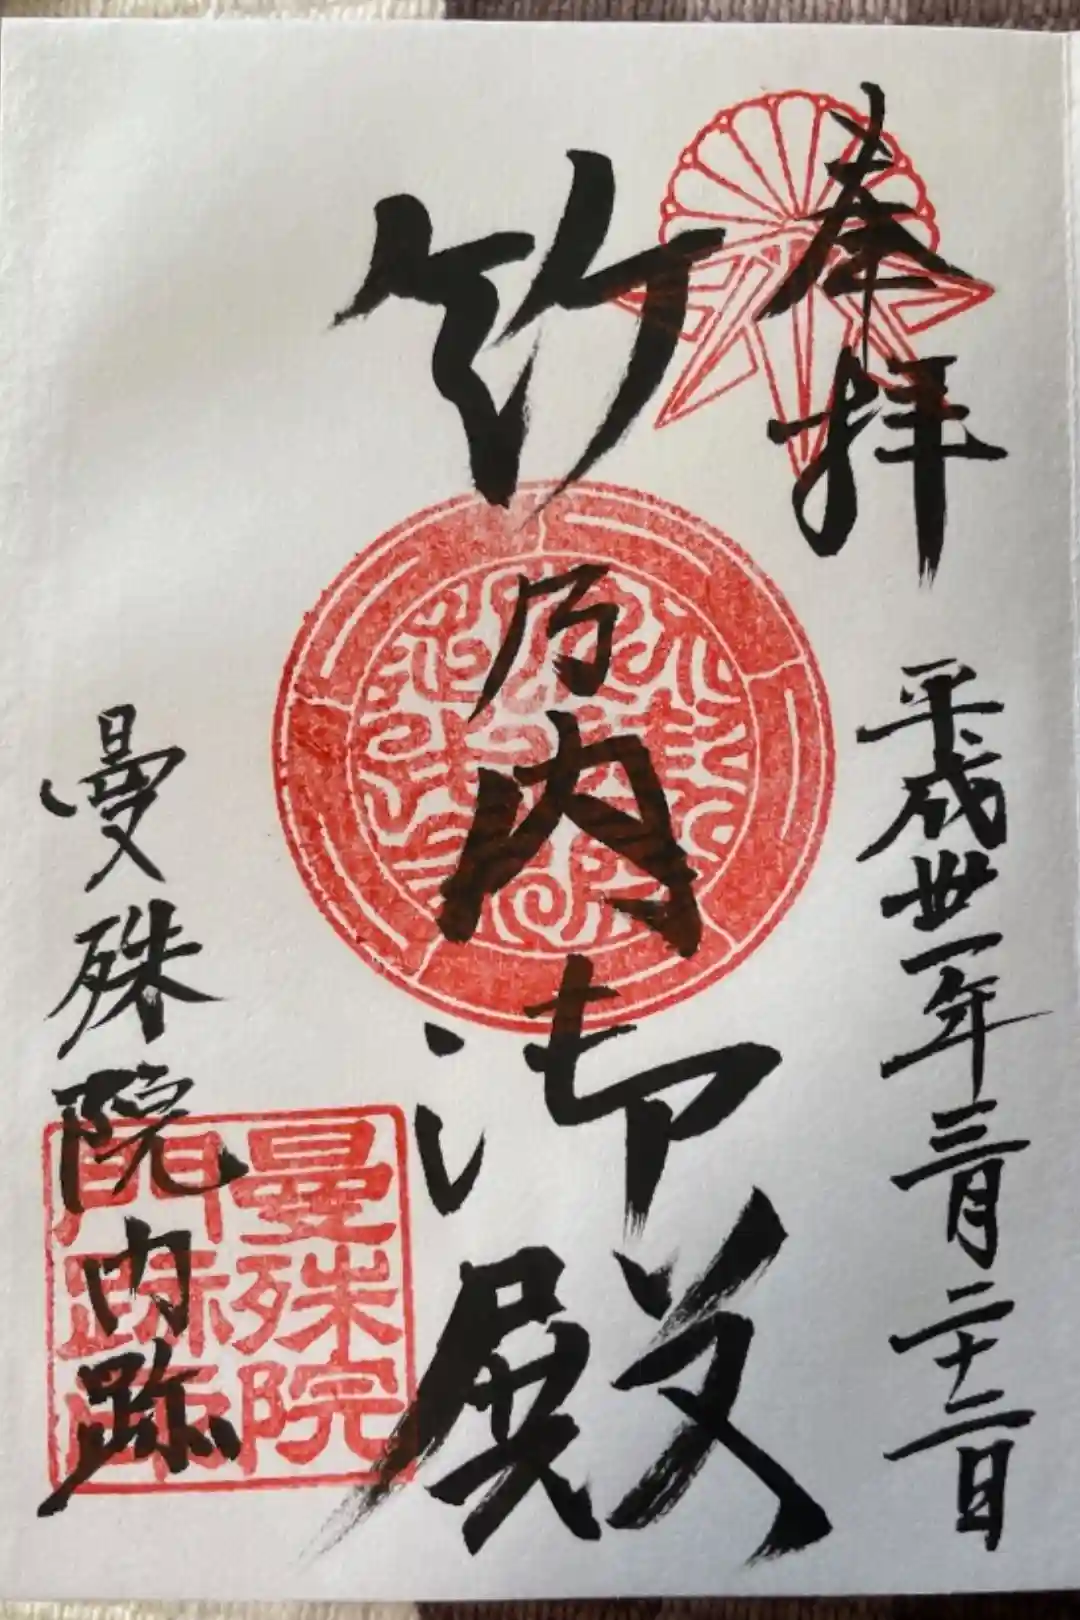 奉拝
平成卅一年三月二十二日
竹乃内御殿
曼殊院門跡
曼殊院
門跡